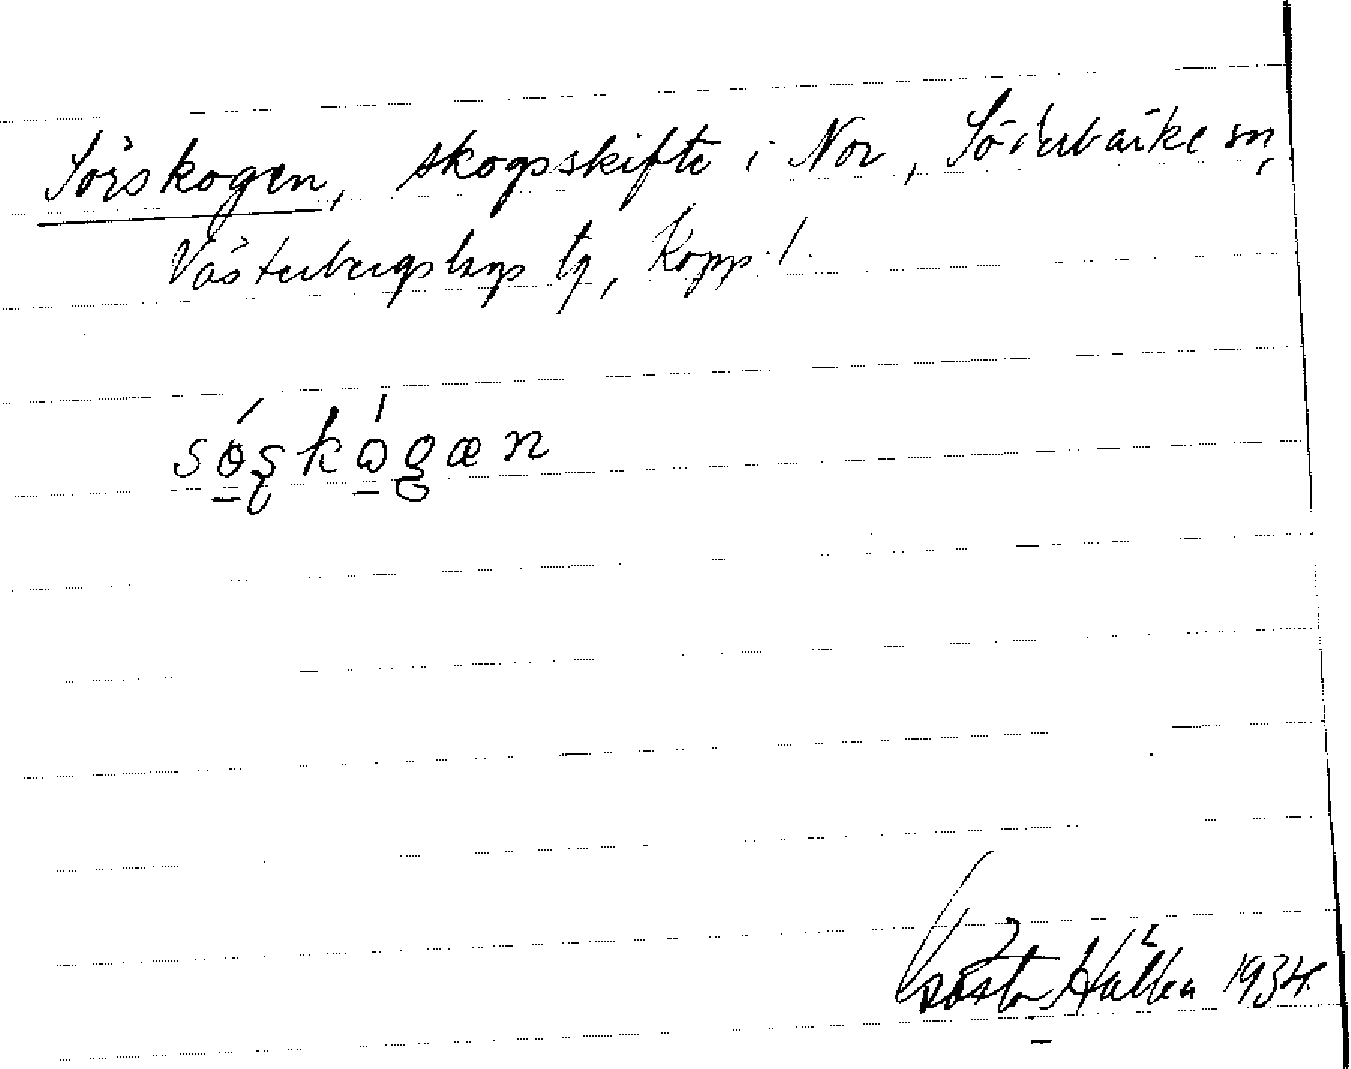 Sörskogen, skogsskifte i Nor, Söderbärke sn,
Västerbergslags tg, Kopp. l.
Gösta 1934.